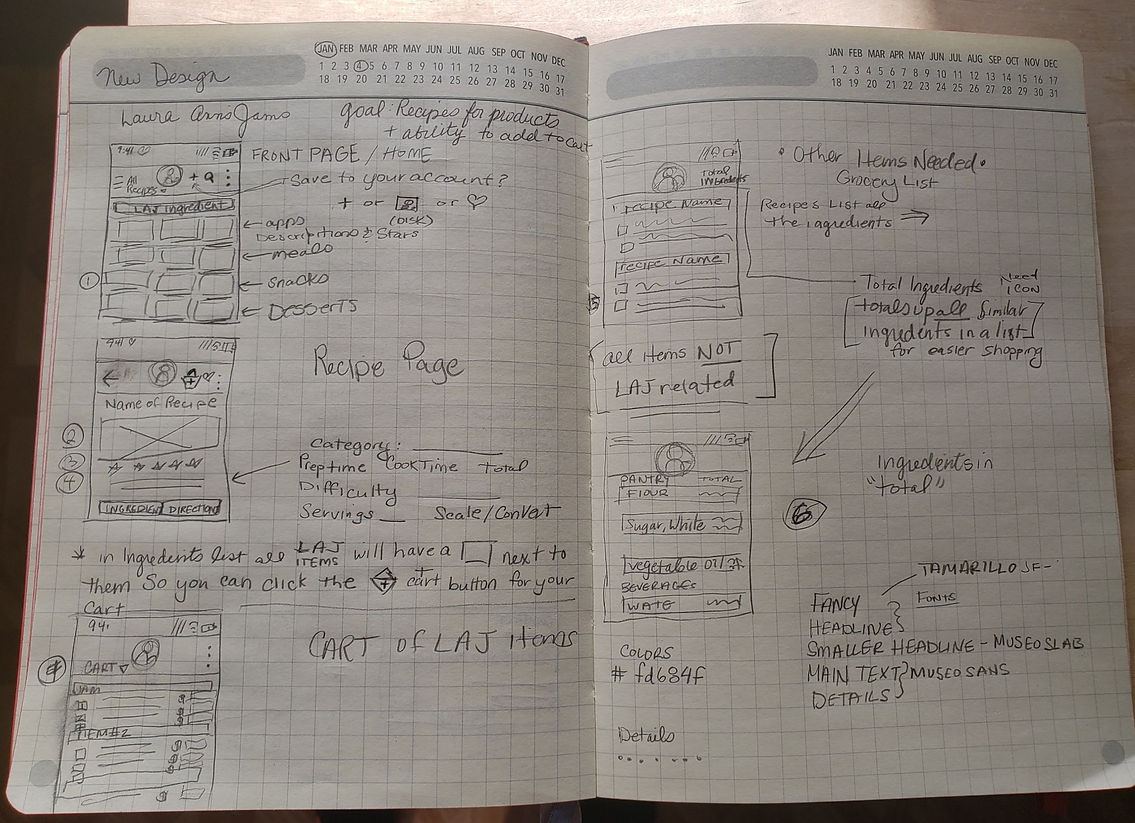 JAN FEB MAR APR MAY JUN JUL AUG SEP OCT NOV DEC
1 2 3 4 5 6 7 8 9 10 11 12 13 14 15 16 17
18 19 20 21 22 23 24 25 26 27 28 29 30 31
New Design
Laura Ann's Jams
goal: Recipes for products
+ ability to add to cart
9:41
All
Recipes
+
LAJ Ingredient
FRONT PAGE / HOME
Save to your account?
+ or or ♡
(DISK)
apps
Descriptions & Stars
meals
①
snacks
Desserts
9:41
Recipe Page
Name of Recipe
②
③
④
INGREDIENT DIRECTIONS
Category:
Prep time Cook Time Total
Difficulty
Servings Scale/Convert
* in Ingredients list all LAJ ITEMS will have a next to
them so you can click the + cart button for your
Cart
94
CART
JAM
ITEM #2
CART of LAJ items
JAN FEB MAR APR MAY JUN JUL AUG SEP OCT NOV DEC
1 2 3 4 5 6 7 8 9 10 11 12 13 14 15 16 17
18 19 20 21 22 23 24 25 26 27 28 29 30 31
TOTAL
INGREDIENTS
recipe Name
recipe Name
• Other Items Needed •
Grocery List
Recipes List all
the ingredients ⇒
Total Ingredients
need
ICON
totals up all similar
ingredients in a list
for easier shopping
all items NOT
LAJ related
PANTRY TOTAL
FLOUR
Sugar, White
vegetable Oil
BEVERAGES
WATE
Ingredients in
"total"
⑥
COLORS
# fd684f
Details
TAMARILLO JF
FONTS
FANCY
HEADLINE
SMALLER HEADLINE - MUSEO SLAB
MAIN TEXT MUSEO SANS
DETAILS